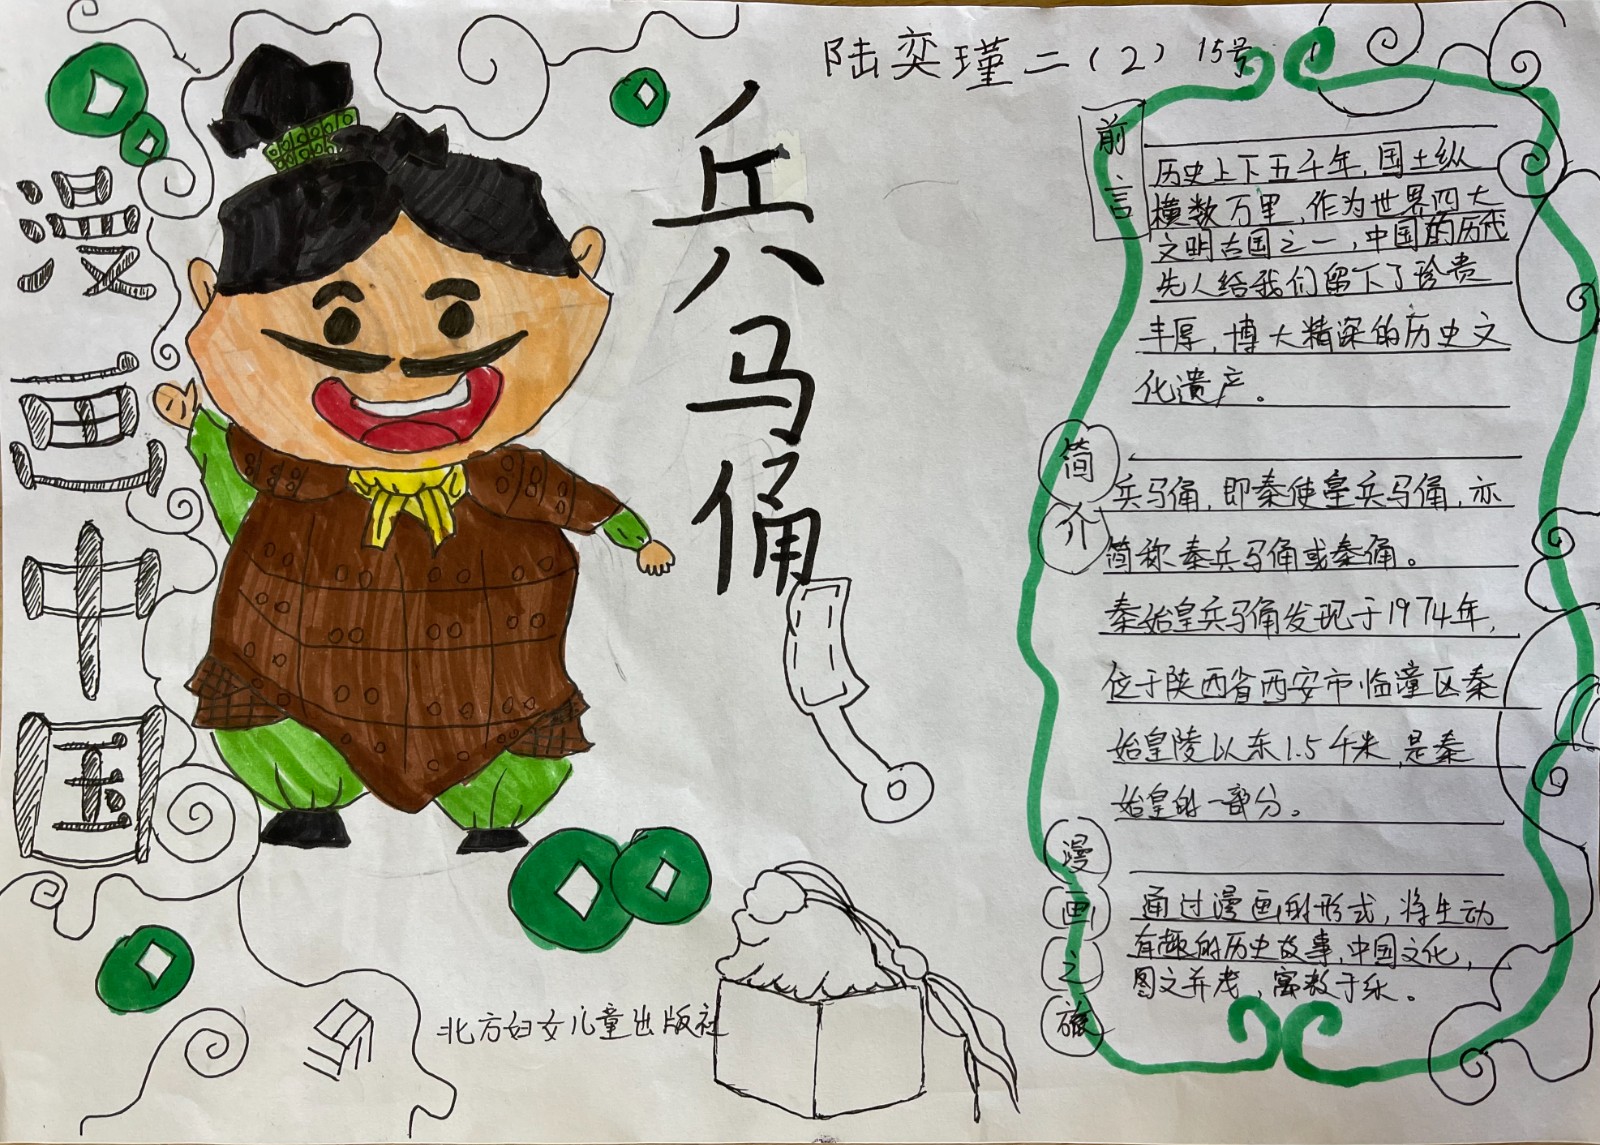 陆奕瑾二（2）15号
漫画中国
兵马俑
前言
历史上下五千年，国土纵
横数万里，作为世界四大
文明古国之一，中国的历代
先人给我们留下了珍贵
丰厚，博大精深的历史文
化遗产。
简介
兵马俑，即秦使皇兵马俑，亦
简称秦兵马俑或秦俑。
秦始皇兵马俑发现于1974年，
位于陕西省西安市临潼区秦
始皇陵以东1.5千米，是秦
始皇的一部分。
漫画之旅
通过漫画的形式，将生动
有趣的历史故事，中国文化，
图文并茂，寓教于乐。
北方妇女儿童出版社